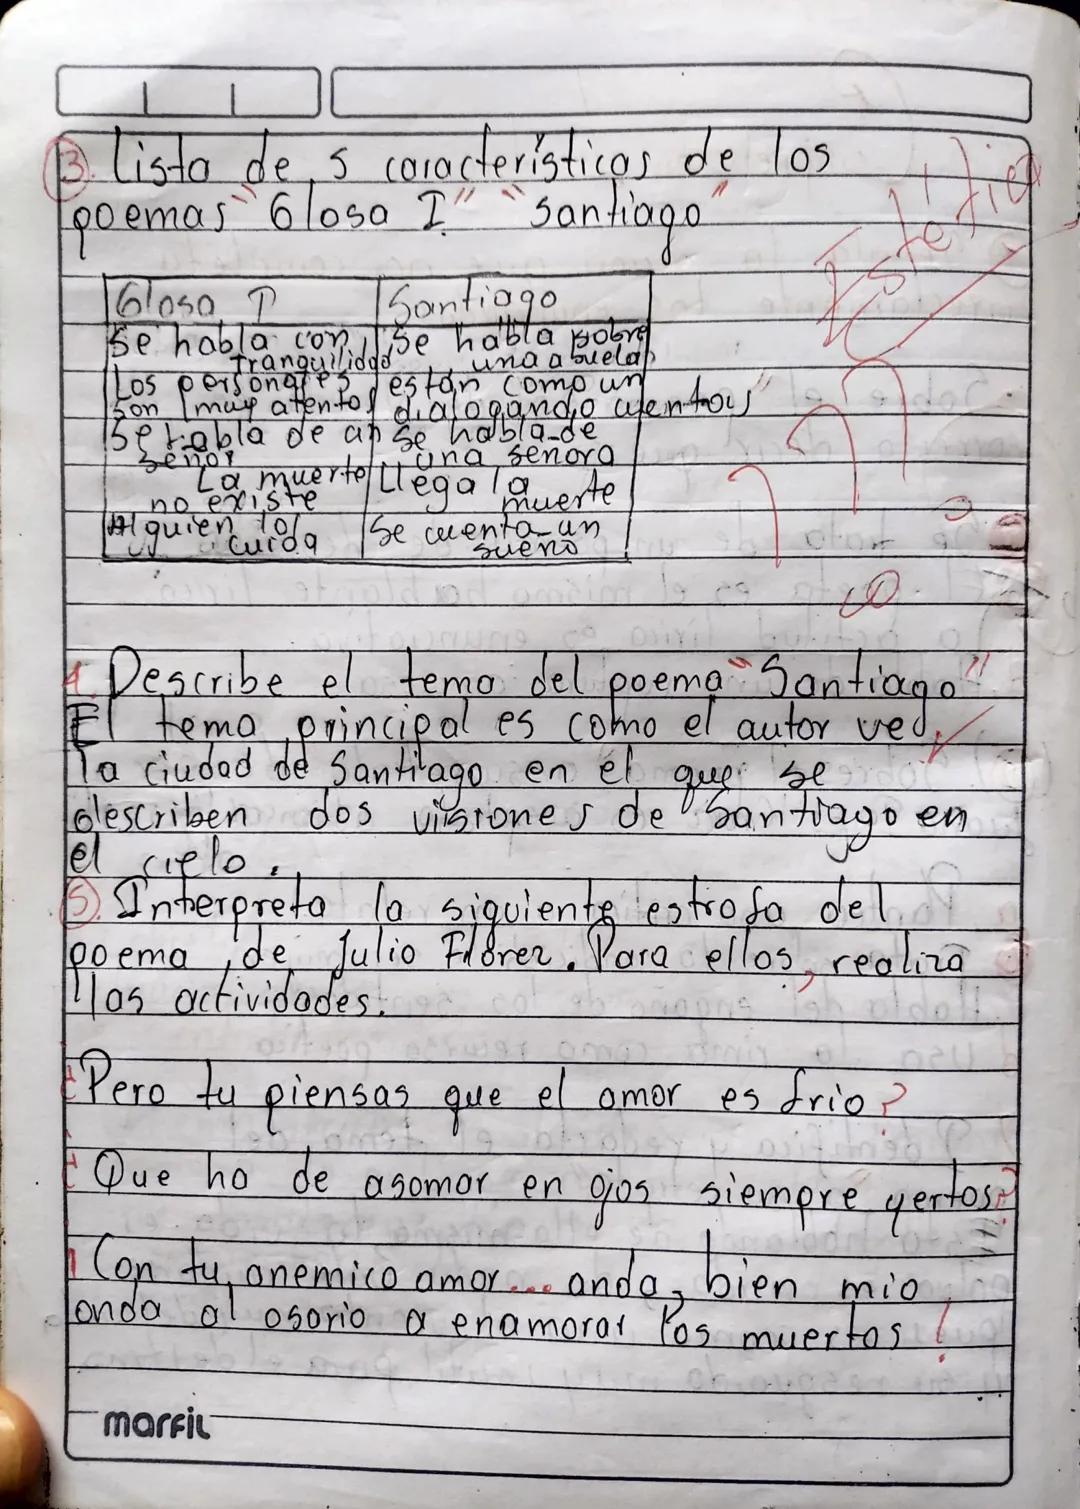 3. Lista de 5 características de los
poemas "Glosa I" "Santiago"
Estética
Glosa I Santiago
Se habla con tranquilidad Se habla sobre una abuela
Los personajes son muy atentos están como un dialogando cuentos
Se habla de un señor Se habla de una señora
La muerte no existe Llega la muerte
Alguien lo cuida Se cuenta un sueño
4. Describe el tema del poema "Santiago"
El tema principal es como el autor ve
la ciudad de Santiago en el que se
describen dos visiones de Santiago en
el cielo.
5. Interpreta la siguiente estrofa del
poema de Julio Flórez. Para ellos, realiza
las actividades.
¿Pero tu piensas que el amor es frio?
¿Que ha de asomar en ojos siempre yertos?
¡Con tu anemico amor... anda, bien mio
anda al osario a enamorar los muertos!
marfil